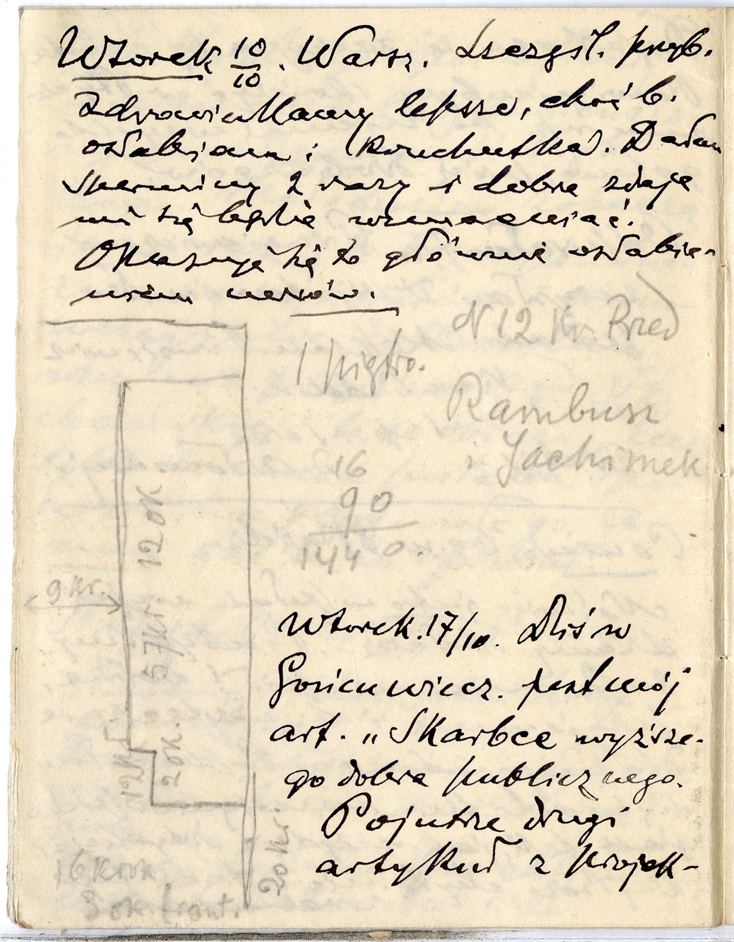 Wtorek 10/10. Warsz. Szczęśl. przyb.
Zdrowie Mamy lepsze, choć b.
osłabiona i
2 razy i dobrze zdaje
mi się będzie wzmacniać.
Okazuje się że głównie osłabie-
niem nerwów.
N 12 Kr. Przed
1 piętro.
Rambusz
i Jachimek
16
90
1440.
9 kr.
57 kr 12 ok
12 kr
2 ok.
20 kr.
16 krok
3 ok front.
Wtorek. 17/10. Dziś w
jest mój
art. „Skarbce wyższe-
go dobra publicznego.
Pojutrze drugi
artykuł z projek-